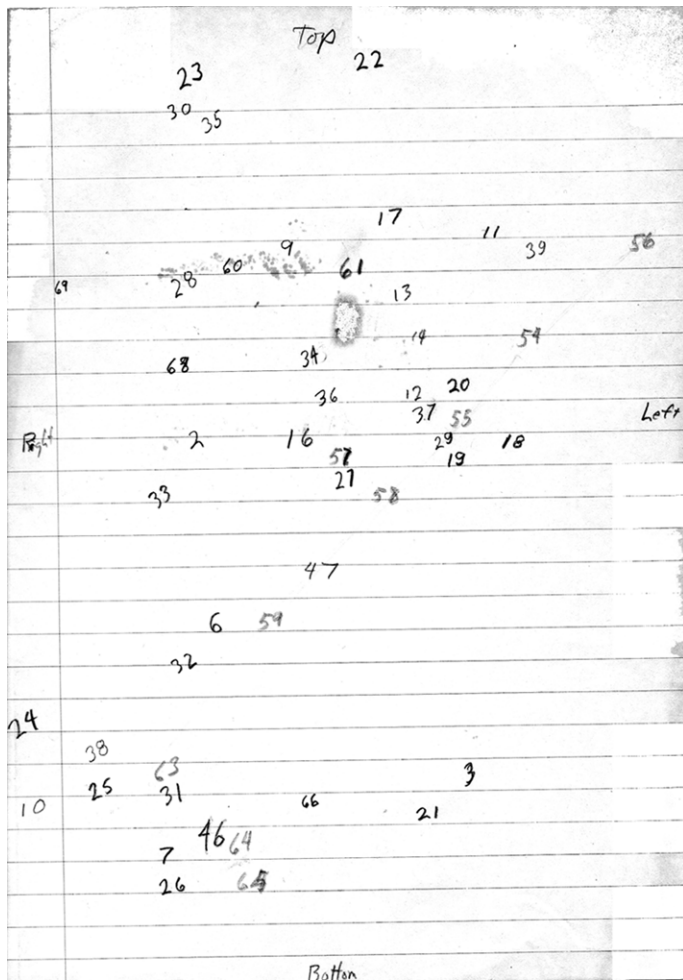 Top
22
23
30
35
17
11
9
39
56
60
61
28
69
13
14
54
34
68
36
12
20
37
55
Left
Right
2
16
29
18
57
19
27
33
58
47
6
59
32
24
38
63
3
25
31
66
10
21
46
64
7
26
65
Bottom